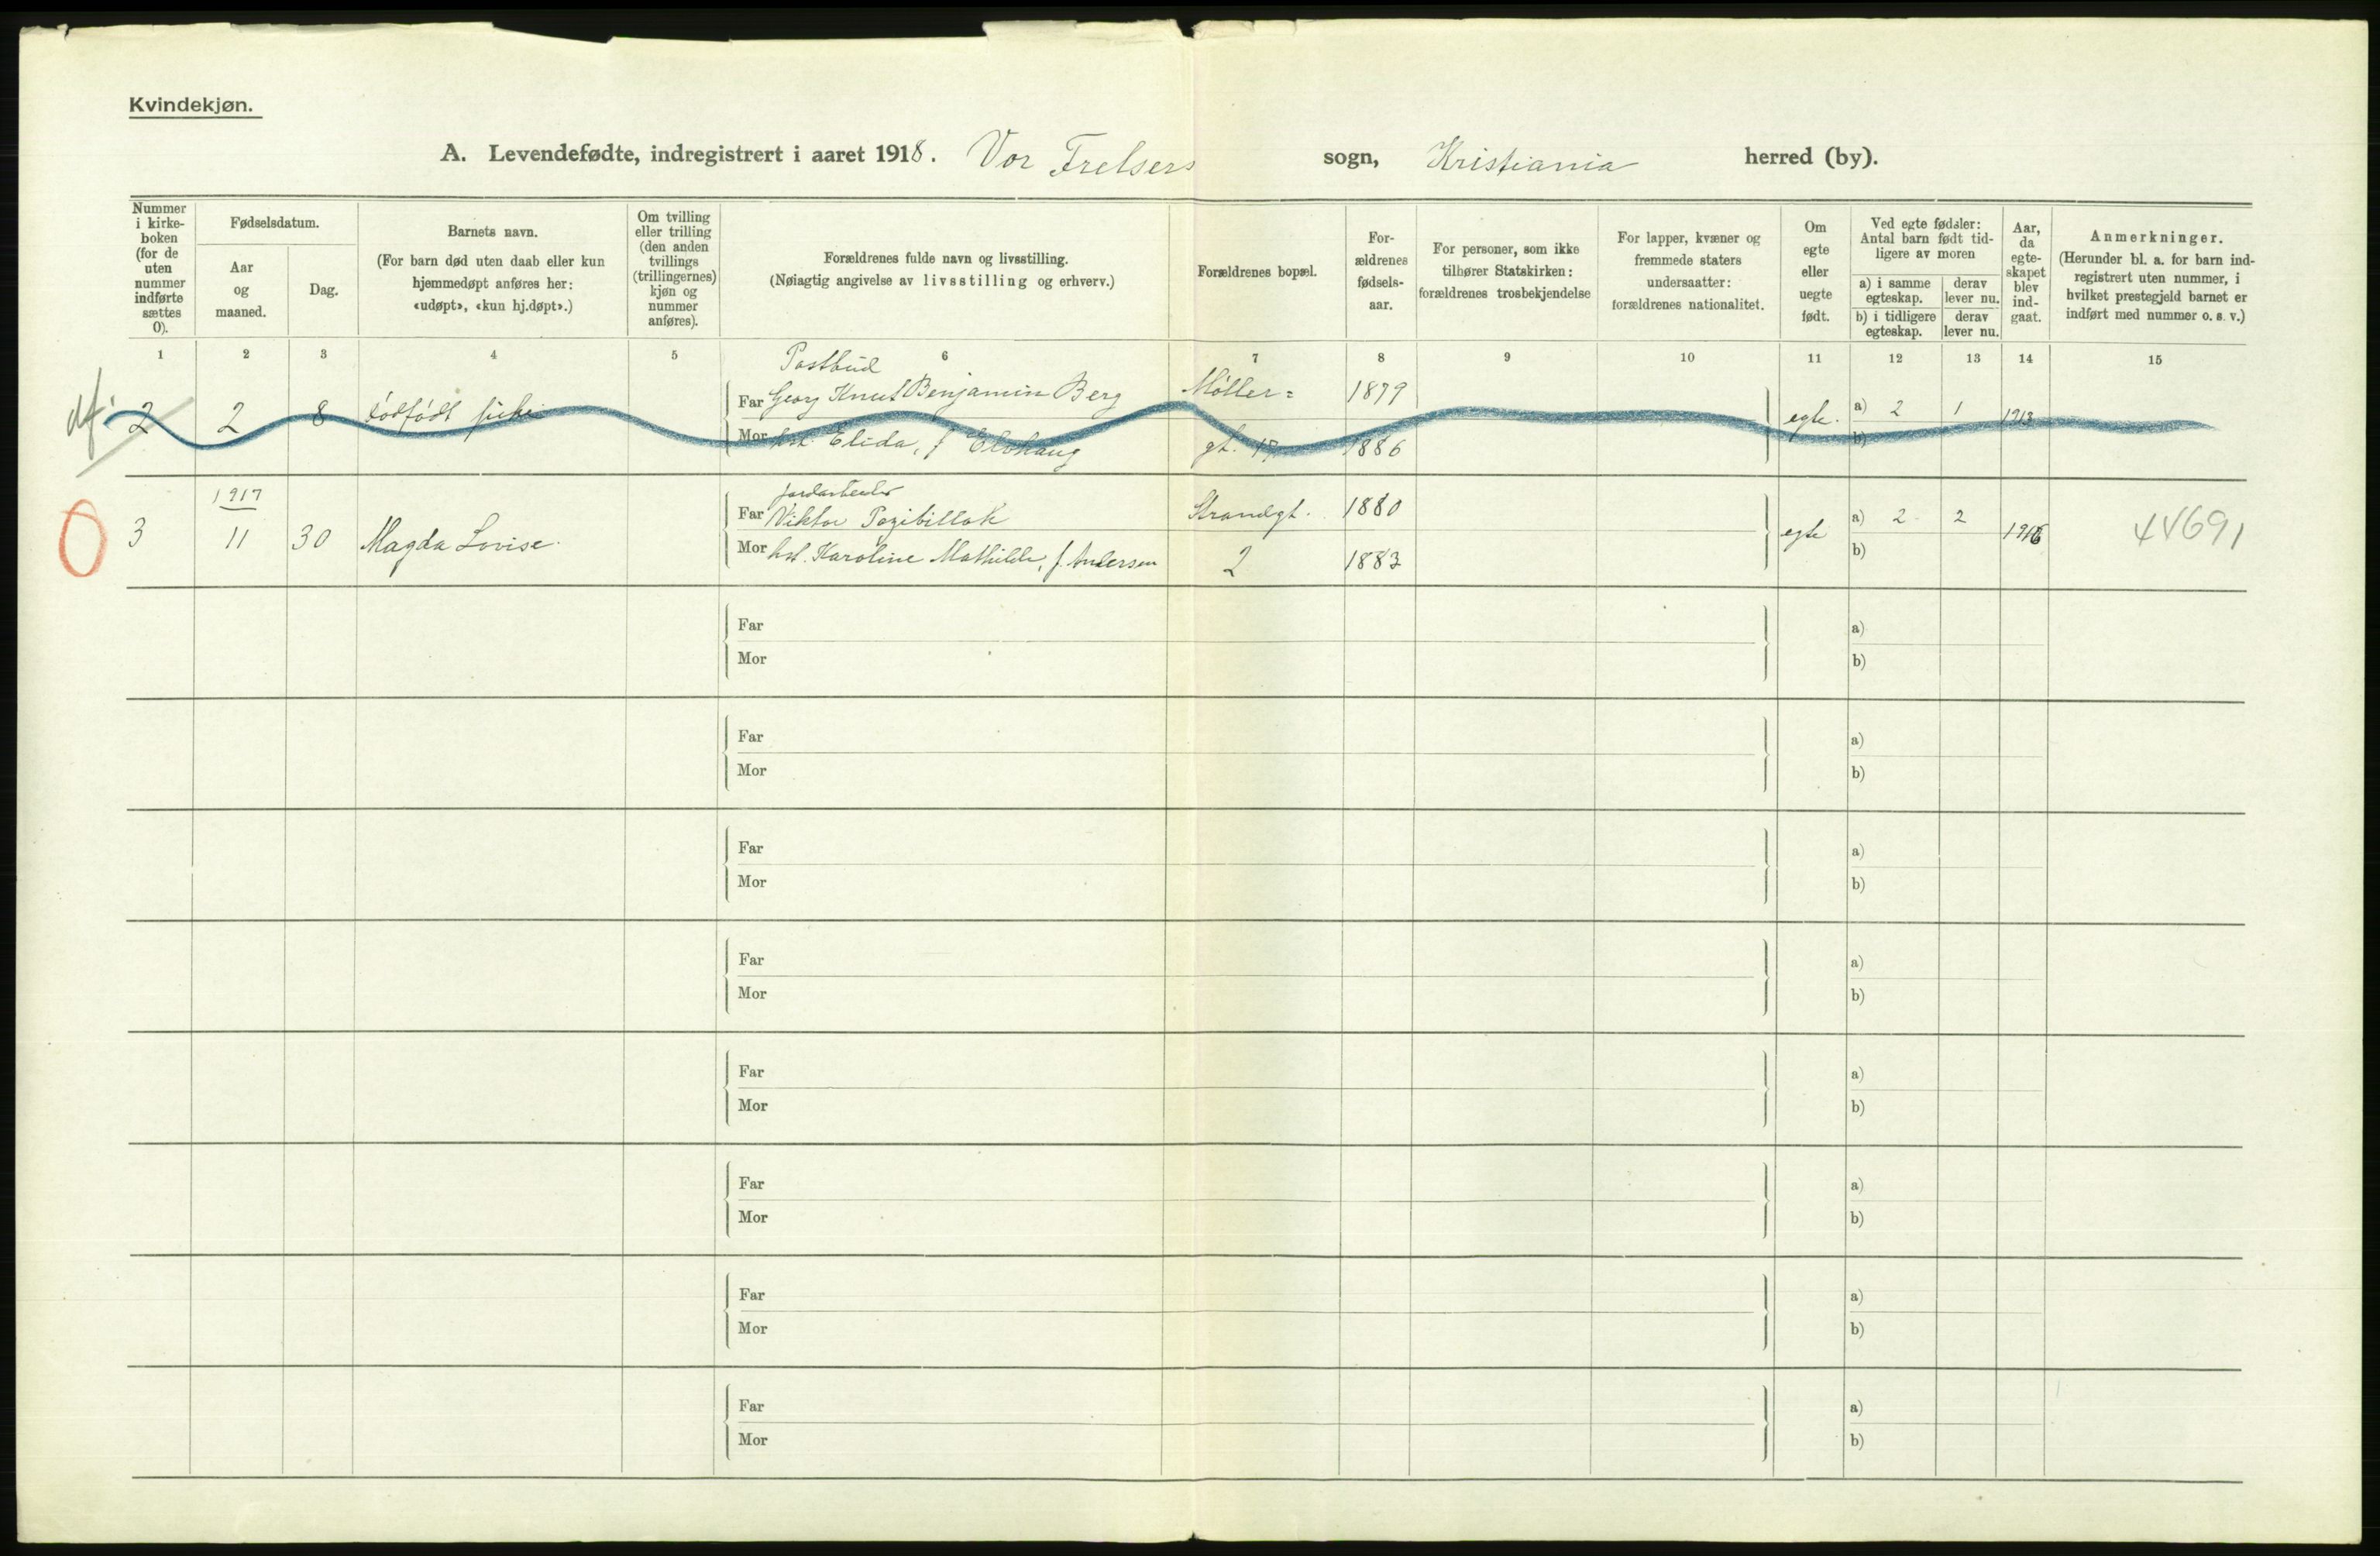 Kvindekjøn.
A. Levendefødte, indregistrert i aaret 1918. Vor Frelsers sogn, Kristiania herred (by).
Nummer i kirke-boken (for de uten nummer indførte sættes 0).
Fødselsdatum.
Aar og maaned.
Dag.
Barnets navn.
(For barn død uten daab eller kun hjemmedøpt anføres her: «udøpt», «kun hj.døpt».)
Om tvilling eller trilling (den anden tvillings (trillingernes) kjøn og nummer anføres).
Forældrenes fulde navn og livsstilling.
(Nøiagtig angivelse av livsstilling og erhverv.)
Forældrenes bopæl.
For-ældrenes fødsels-aar.
For personer, som ikke tilhører Statskirken: forældrenes trosbekjendelse
For lapper, kvæner og fremmede staters undersaatter: forældrenes nationalitet.
Om egte eller uegte født.
Ved egte fødsler: Antal barn født tid-ligere av moren
a) i samme egteskap.
derav lever nu.
b) i tidligere egteskap.
derav lever nu.
Aar, da egte-skapet blev ind-gaat.
Anmerkninger.
(Herunder bl. a. for barn ind-registrert uten nummer, i hvilket prestegjeld barnet er indført med nummer o. s. v.)
1 2 3 4 5 6 7 8 9 10 11 12 13 14 15
Postbud
2 2 8 dødfødt pike Far Georg Knut Benjamin Berg Møller= 1879 egte. a) 2 1 1913
Mor hst. Elida, f. gt. 17 1886 b)
1917 Jordarbeider
0 3 11 30 Magda Lovise. Far Viktor Strandgt. 1880 egte a) 2 2 1916 44691
Mor hst. Karoline Mathilde, f. Andersen 2 1883 b)
Far a)
Mor b)
Far a)
Mor b)
Far a)
Mor b)
Far a)
Mor b)
Far a)
Mor b)
Far a)
Mor b)
Far a)
Mor b)
Far a)
Mor b)